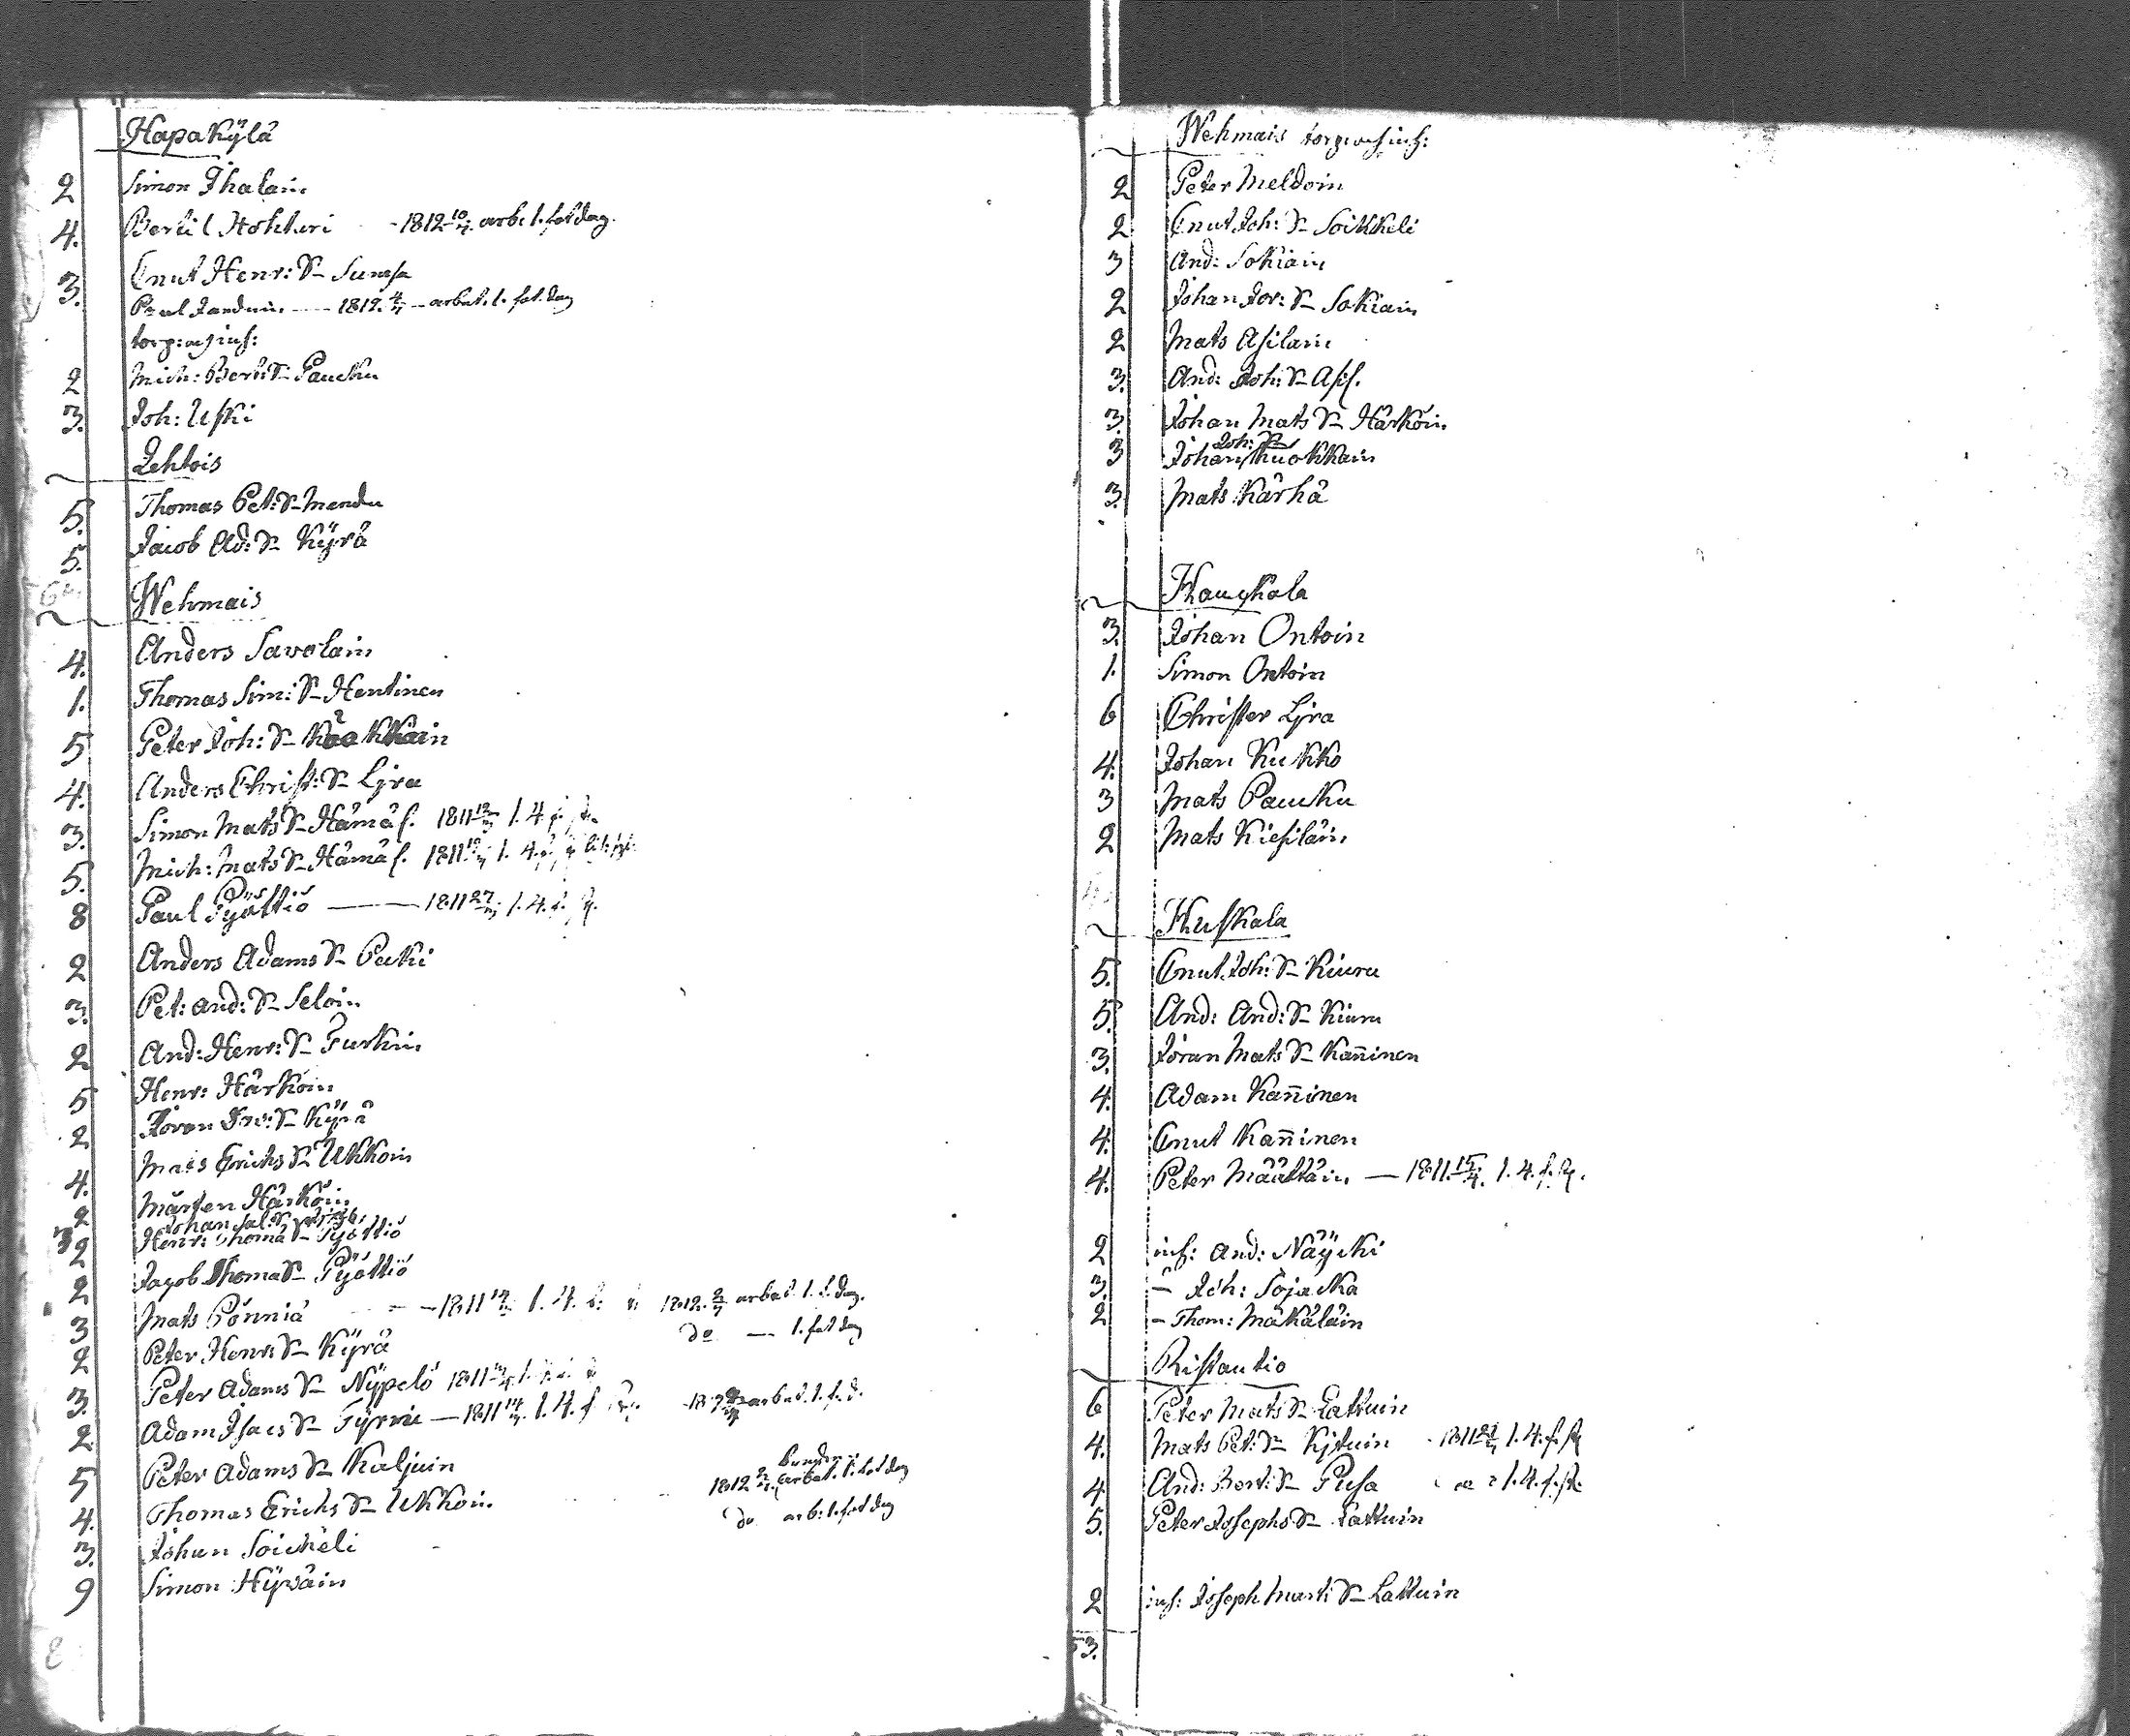 Hapakÿlä
2 Simon Thalain
4. Bertil Hohteri - 1812 10/4 arbe 1. fot dag.
3. Cnut Henr: Sn Sumsa
Paul Jandoin --- 1812. 4/7 - arbet. 1. fot. dag
torp: och inh:
2 Mich: Bert: Sn Paucku
3. Joh: Uski
Lehtois
5. Thomas Pet: Sn Mendu
5. Jacob Ad: Sn Kÿrä
Wehmais
4. Anders Savolain
1. Thomas Sim: Sn Hentinen
5 Peter Joh: Sn
4. Anders Christ: Sn Ljra
3. Simon Mats Sn Hämäl. 1811 1. 4. f.
5. Mich: Mats Sn Hämäl. 1811 1. 4. f.
8 Paul Pÿöttiö — 1811 27 1. 4. f.
2 Anders Adams Sn Peuki
3. Pet: And: Sn Seloin
2 And: Henr: Sn Turkin
5 Henr: Härköin
2 Jöran Sn Kÿrä
4. Mats Erichs Sn Ukkoin
2 Mårten Härköin
Johan
3 2 Henr: Thoma Sn Pÿöttiö
2 Jacob Thoma Sn Pÿöttiö
3 Mats Pönniä — 1811 1. 4. f. 1812. 2/7 arbet. 1. f. dag.
2 Peter Henr: Sn Kÿrä do — 1. fot dag
3. Peter Adams Sn Nÿpelö 1811
2 Adam Isacs Sn Tÿrvi — 1811 14 1. 4. f. arbet. 1. f. d.
5 Peter Adams Sn Kaljuin
4. Thomas Erichs Sn Ukkoin 1812 arbet. 1. fot dag
3. Johan Soickeli do arb: 1. fot dag
9 Simon Hÿväin
Wehmais torp: och inh:
2 Peter Meldoin
2 Cnut Joh: Sn Soikkeli
3 And: Sokiain
2 Johan Jör: Sn Sokiain
2 Mats Asilain
3. And: Joh: Sn Asil.
3. Johan Mats Sn Härköin
Joh: Sn
3 Johan Kuokkain
3. Mats Kärhä
Hauskala
3. Johan Ontoin
1. Simon Ontoin
6 Christer Ljra
4. Johan Kukko
3 Mats Paucku
2 Mats Kiesiläin
Huskala
5. Cnut Joh: Sn Kiuru
5. And: And: Sn Kiuru
3. Jöran Mats Sn Kan̄inen
4. Adam Kan̄inen
4. Cnut Kan̄inen
4. Peter Määttäin — 1811. 15/4. 1. 4. f. R.
2 inh: And: Näÿcki
3. - Joh: Sojacka
2 - Thom: Mäkäläin
Ristautio
6 Peter Mats Sn Lattuin
4. Mats Pet: Sn Kjtuin - 1811 1. 4. f. R
4 And: Bert: Sn Pusa 1. 4. f. R.
5. Peter Josephs Sn Lattuin
2 inh: Joseph Mart: Sn Lattuin
53.